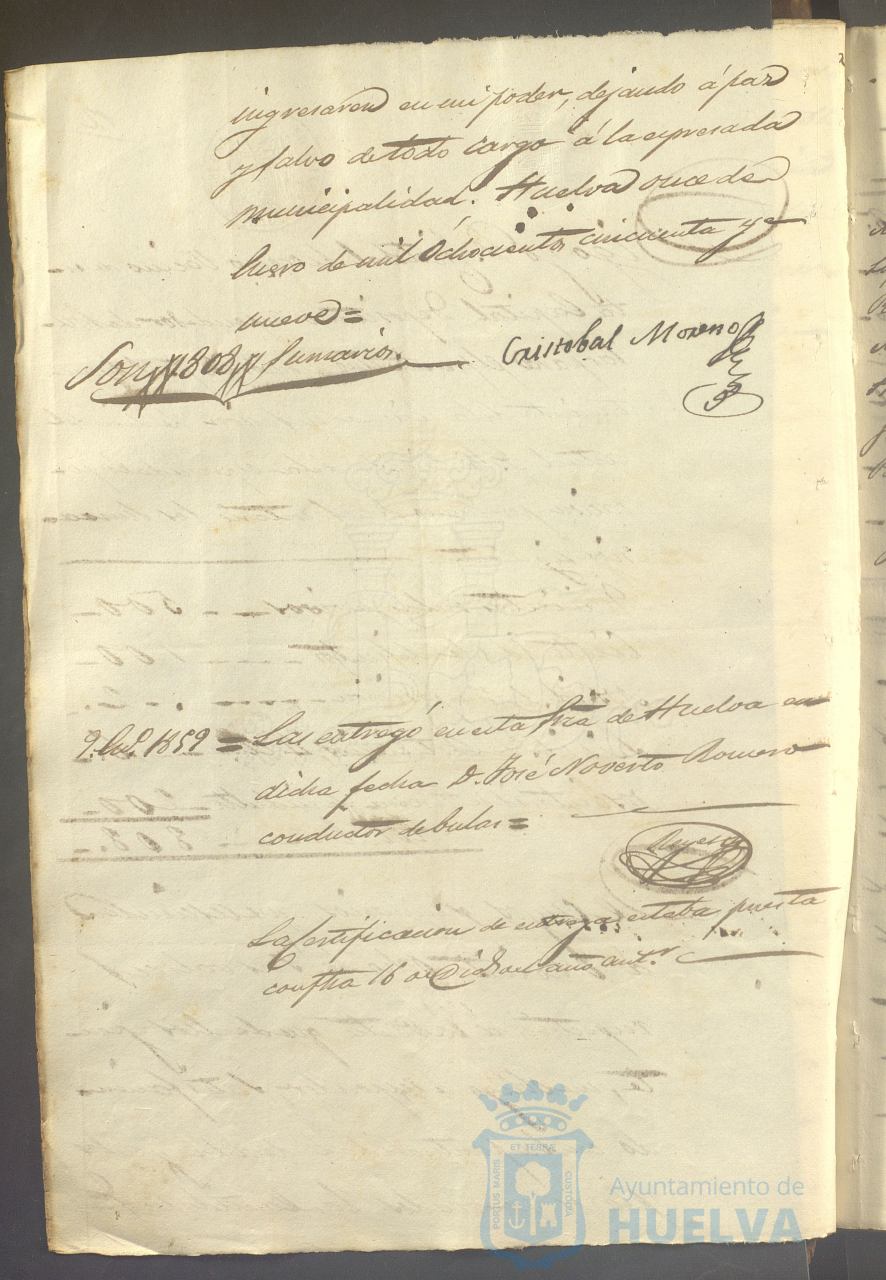 ingresaren en mi poder, dejando á paz
y salvo de todo cargo á la espresada
municipalidad. Huelva once de
Enero de mil Ochocientos cincuenta y
nueve =
Son 1808 Sumarios. Cristobal Moreno
9. En.º 1859 = Las entregó en esta Fra de Huelva en
dicha fecha D. José Noverto Romero
conductor de bulas =
La certificacion de entrega estaba puesta
con fha 16 de Dic.e del año ant.r
PORTUS MARIS
ET TERRÆ
CUSTODIA
Ayuntamiento de
HUELVA